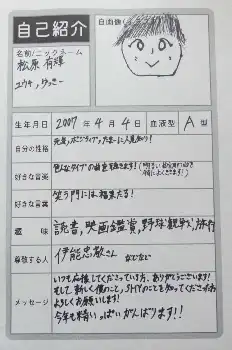 自己紹介
自画像
名前/ニックネーム
松原 有輝
ユウキ、
生年月日 2007年4月4日 血液型 A型
自分の性格 元気、ポジティブ、たまに人見知り!
好きな音楽
好きな言葉 笑う門には福来たる!
趣味 読書、映画鑑賞、野球観戦、旅行
尊敬する人 伊能忠敬さん などなど
メッセージ
いつも応援してくださっている方、ありがとうございます!
そして、新しく僕のこと、
よろしくお願いします!
今年も精いっぱいがんばります!!